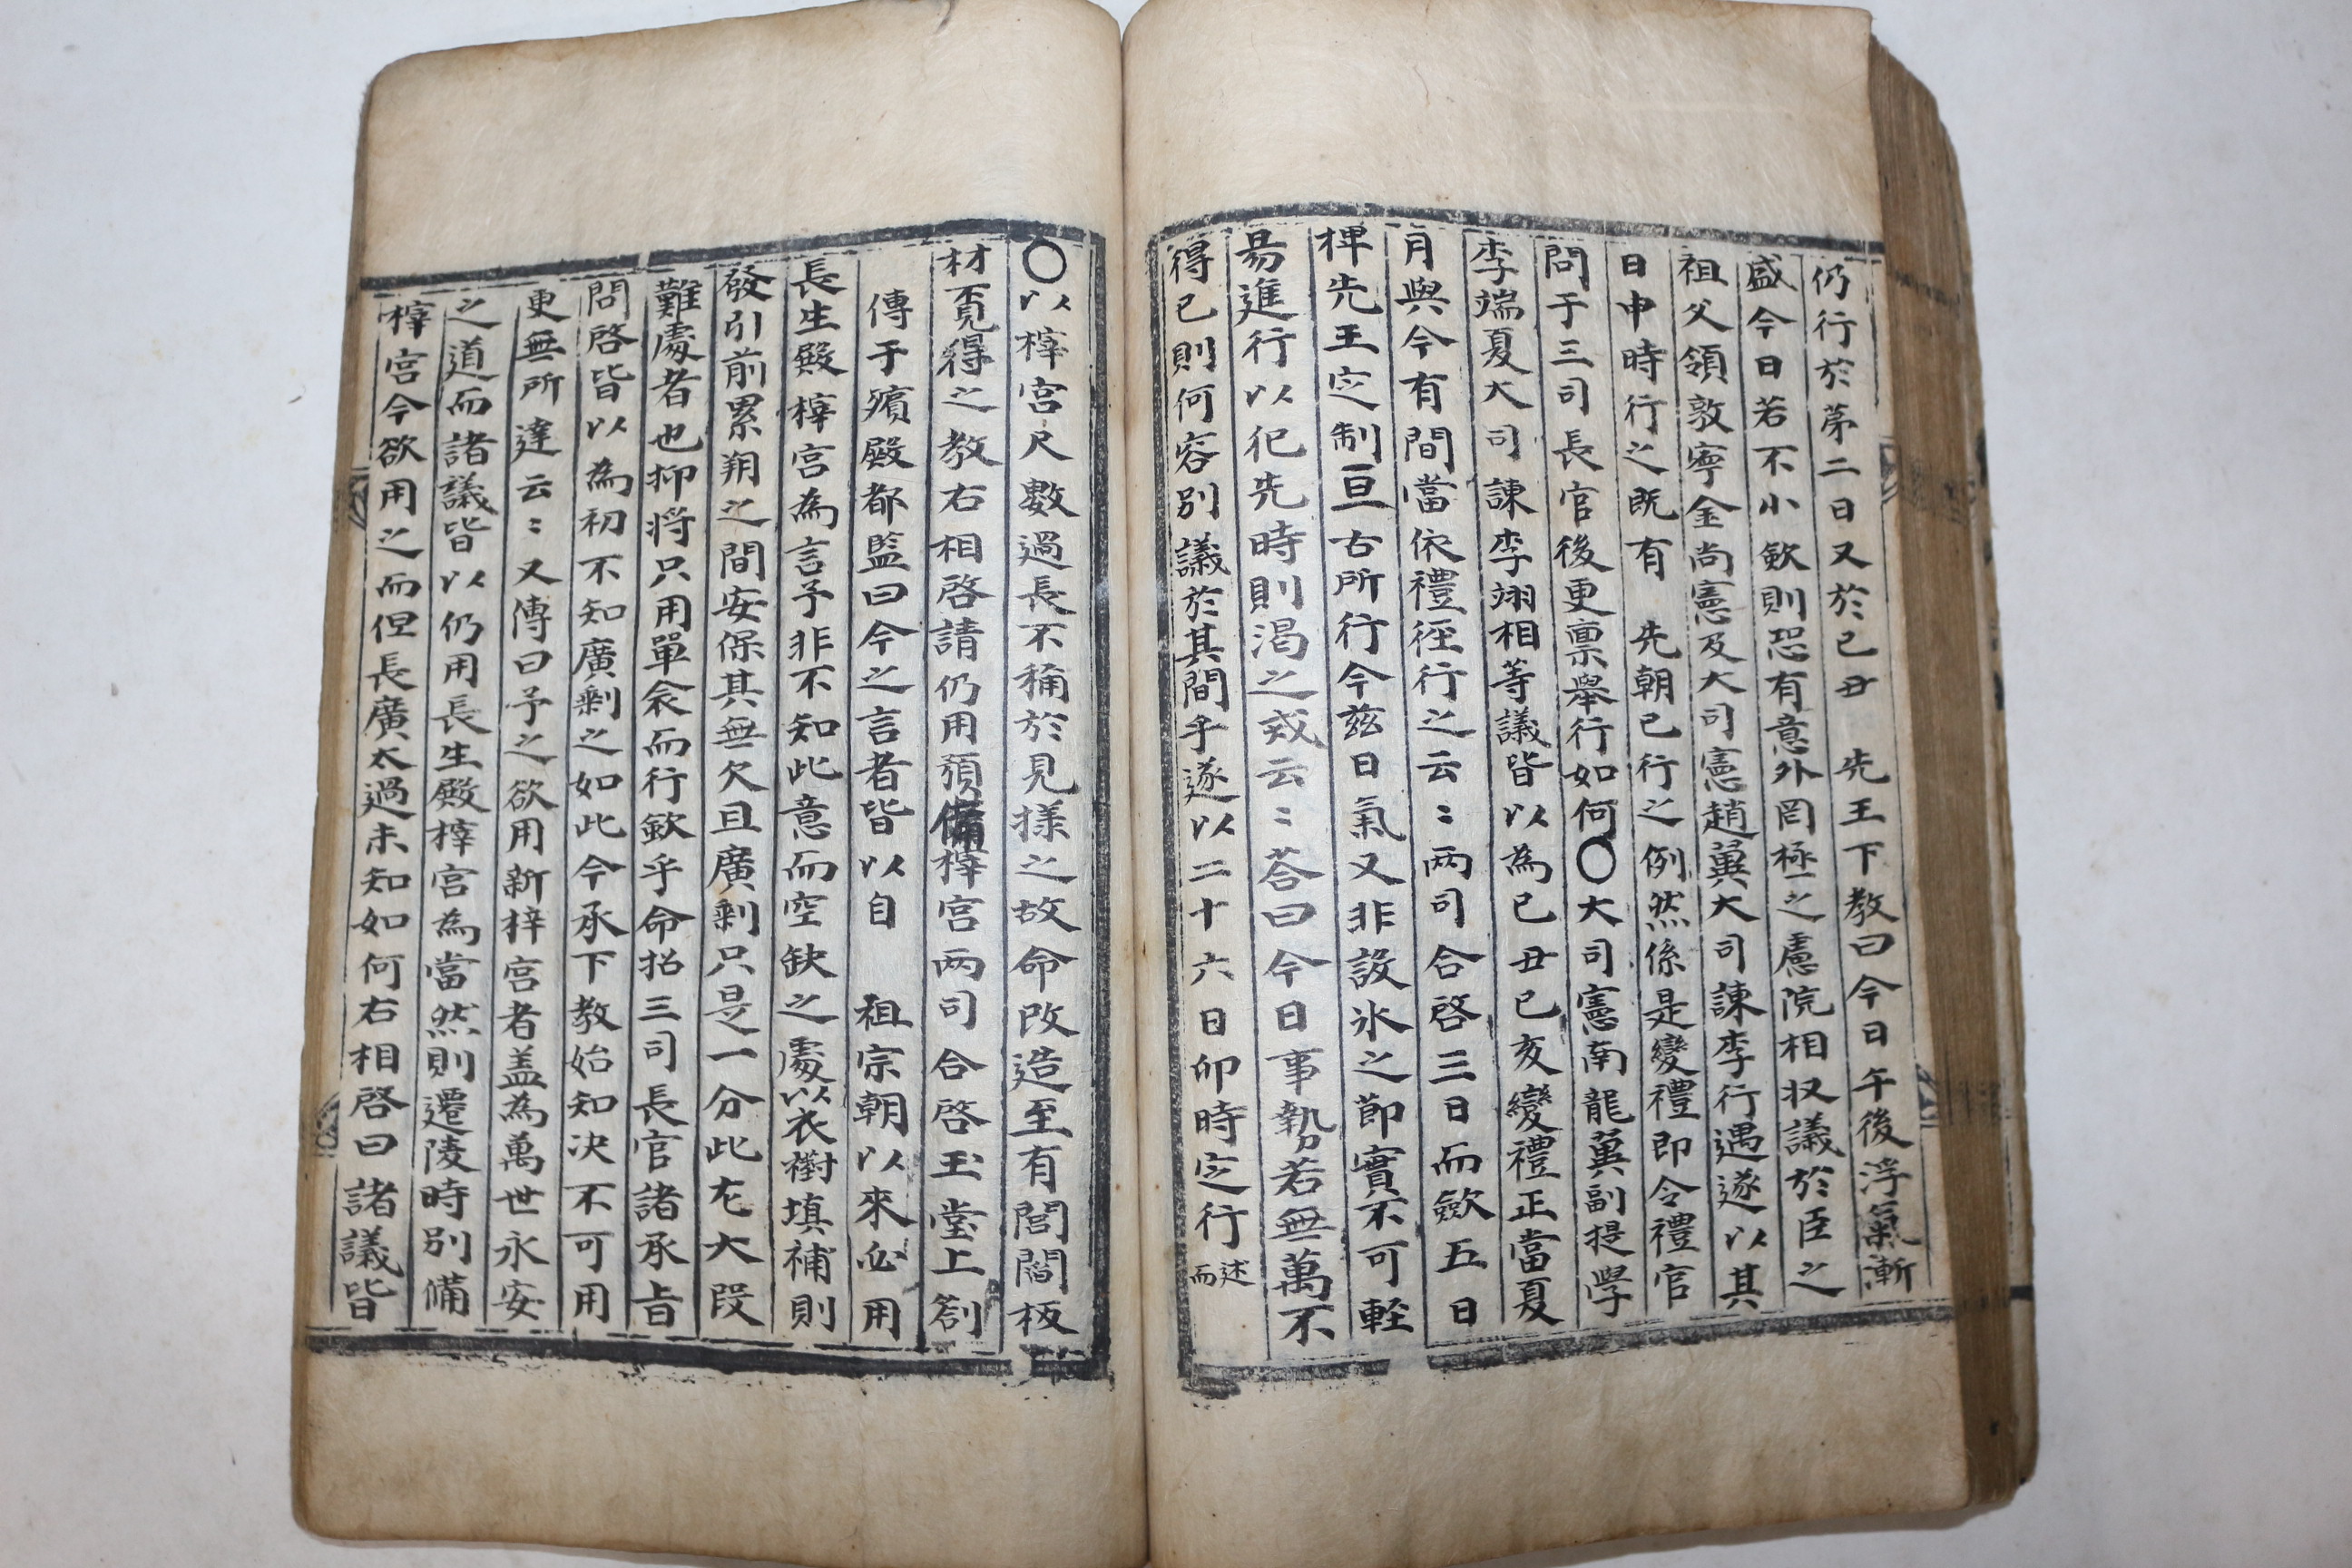 仍行於第二日又於己丑　先王下教曰今日午後浮氣漸
盛今日若不小斂則恐有意外罔極之慮院相収議於臣之
祖父領敦寧金尚憲及大司憲趙翼大司諫李行遇遂以其
日申時行之既有　先朝已行之例然係是變禮即令禮官
問于三司長官後更禀舉行如何〇大司憲南龍翼副提學
李端夏大司諫李翊相等議皆以為己丑己亥變禮正當夏
月與今有間當依禮徑行之云〻兩司合啓三日而斂五日
椑先王定制亘古所行今玆日氣又非設氷之節實不可輕
易進行以犯先時則渴之戒云〻答曰今日事勢若無萬不
得已則何容別議於其間乎遂以二十六日卯時定行述而
〇以梓宮尺數過長不稱於見樣之故命改造至有閭閻板
材覔得之教右相啓請仍用預備梓宮兩司合啓玉堂上劄
傳于殯殿都監曰今之言者皆以自　祖宗朝以來必用
長生殿梓宮為言予非不知此意而空缺之處以衣襨填補則
發引前累朔之間安保其無欠且廣剩只是一分此尤大段
難處者也抑将只用單衾而行斂乎命招三司長官諸承旨
問啓皆以為初不知廣剩之如此今承下教始知决不可用
更無所達云〻又傳曰予之欲用新梓宮者盖為萬世永安
之道而諸議皆以仍用長生殿梓宮為當然則遷陵時別備
梓宮今欲用之而但長廣太過未知如何右相啓曰諸議皆